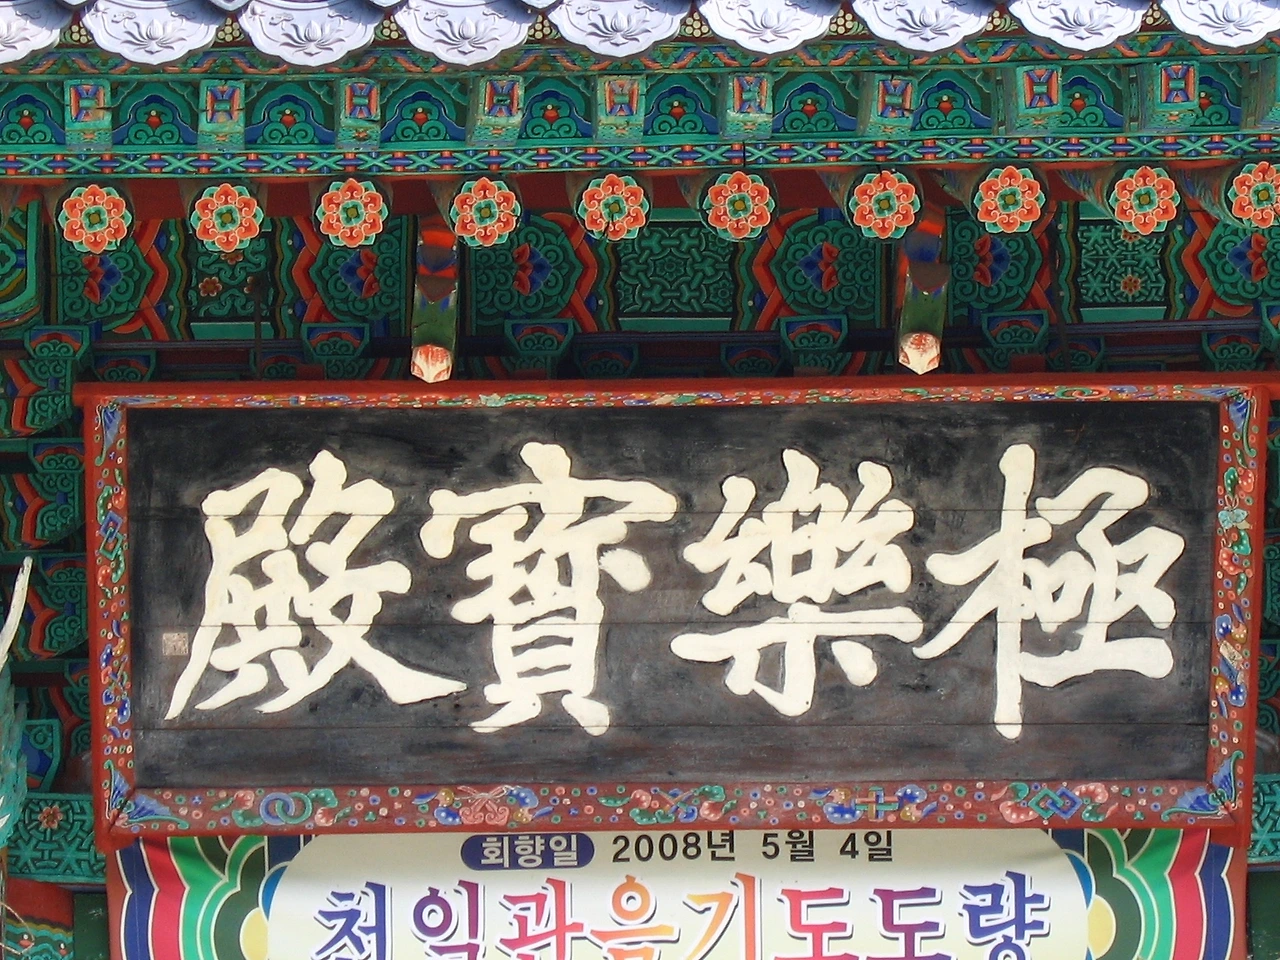 極樂寶殿
회향일 2008년 5월 4일
천일관음기도도량